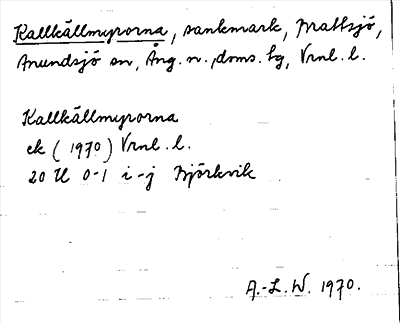 Kallkällmyrorna, sankmark, Mattsjö,
Anundsjö sn, Ång. n., doms. bg, Vrnl. l.
Kallkällmyrorna
ek (1970) Vrnl. l.
20 U 0-1 i-j Björkvik
A.-L. W. 1970.